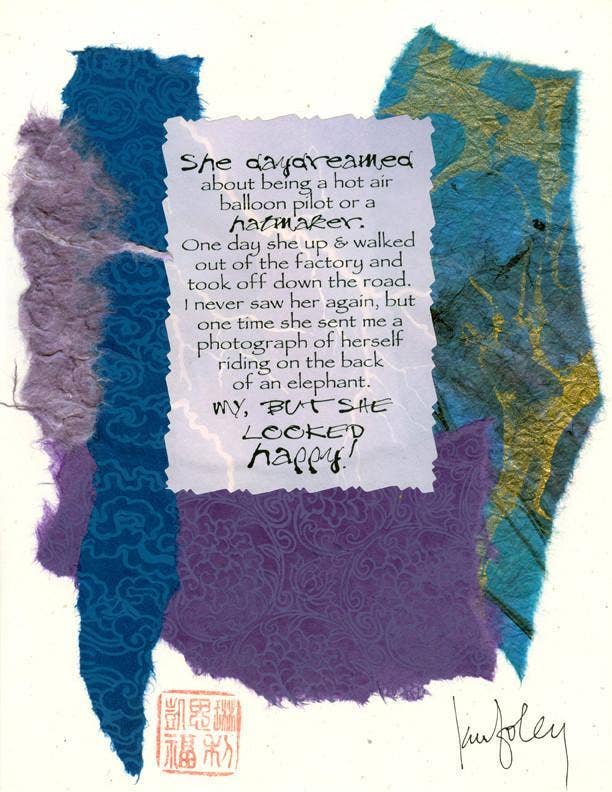 She daydreamed
about being a hot air
balloon pilot or a
hatmaker.
One day she up & walked
out of the factory and
took off down the road.
I never saw her again, but
one time she sent me a
photograph of herself
riding on the back
of an elephant.
MY, BUT SHE
LOOKED
happy!
凱思琳
福利